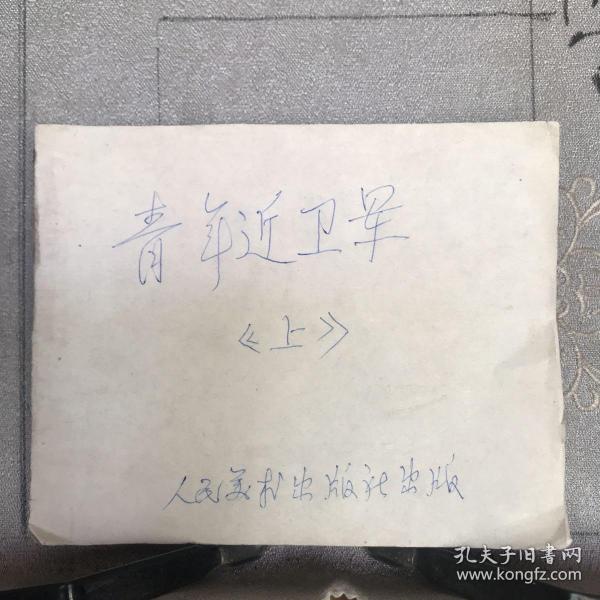 青年近卫军
《上》
人民美术出版社出版
孔夫子旧书网
www.kongfz.com